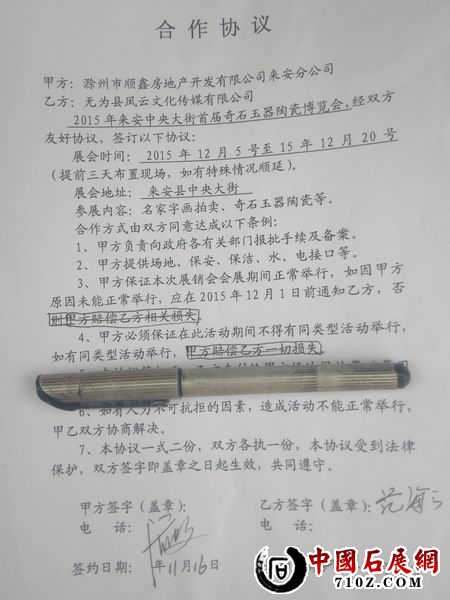 合作协议
甲方：滁州市顺鑫房地产开发有限公司来安分公司
乙方：无为县风云文化传媒有限公司
2015年来安中央大街首届奇石玉器陶瓷博览会，经双方
友好协议，签订以下协议：
展会时间：2015年12月5号至15年12月20号
（提前三天布置现场，如有特殊情况顺延）。
展会地址：来安县中央大街
参展内容：名家字画拍卖、奇石玉器陶瓷等。
合作方式由双方同意达成以下条例：
1、甲方负责向政府各有关部门报批手续及备案。
2、甲方提供场地、保安、保洁、水、电接口等。
3、甲方保证本次展销会会展期间正常举行，如因甲方
原因未能正常举行，应在2015年12月1日前通知乙方，否
则甲方赔偿乙方相关损失。
4、甲方必须保证在此活动期间不得有同类型活动举行，
如有同类型活动举行，甲方赔偿乙方一切损失。
6、如有人力不可抗拒的因素，造成活动不能正常举行，
甲乙双方协商解决。
7、本协议一式二份，双方各执一份，本协议受到法律
保护，双方签字即盖章之日起生效，共同遵守。
甲方签字（盖章）：
乙方签字（盖章）：
电话：
电话：
签约日期：年11月16日
中國石展網
7102.COM